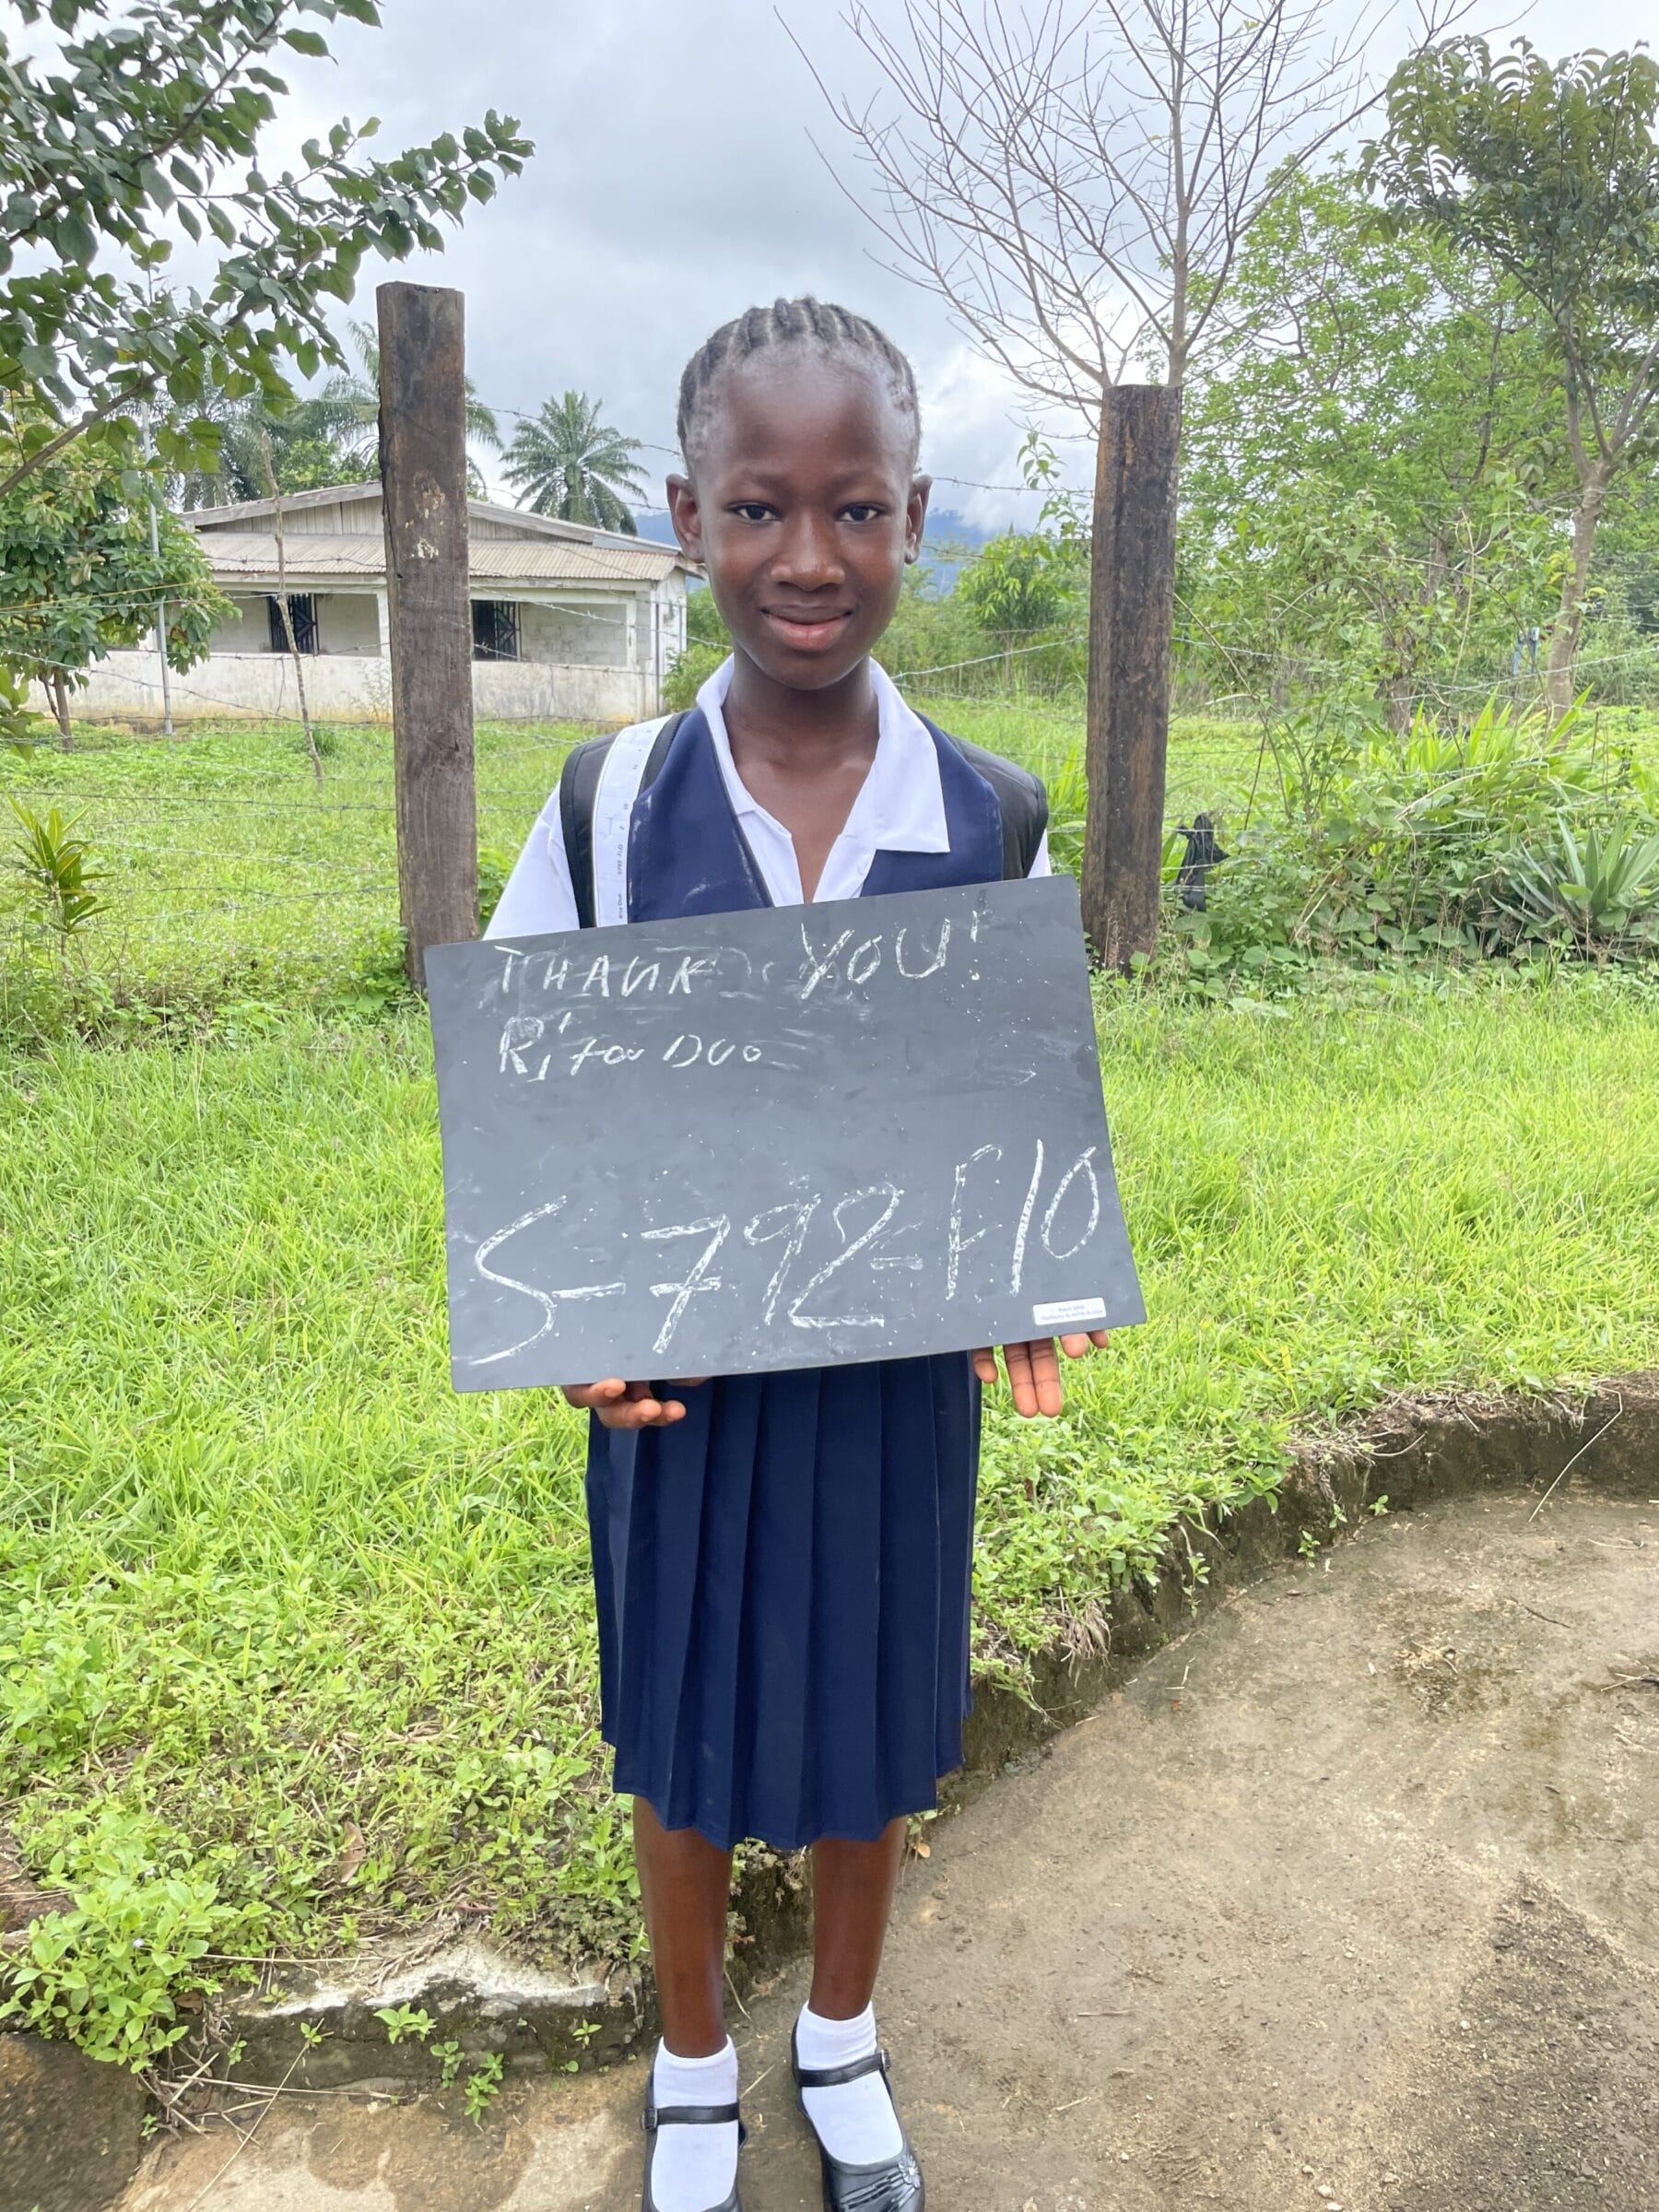 THANK YOU!
Rita Duo
S-792-F10